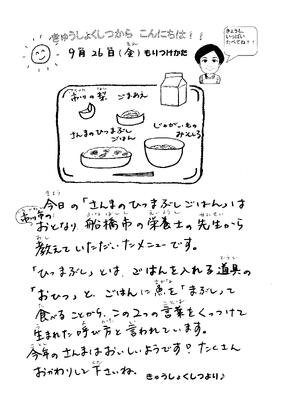 きゅうしょくしつから こんにちは!!
9月26日(金)もりつけかた
きょうも、
いっぱい
たべてね!!
市川の梨
ごまあえ
さんまのひつまぶし
ごはん
じゃがいもの
みそしる
今日の「さんまのひつまぶしごはん」は
市川の
おとなり、船橋市の栄養士の先生から
教えていただいたメニューです。
「ひつまぶし」とは、ごはんを入れる道具の
「おひつ」と、ごはんに魚を「まぶして」
食べることから、この2つの言葉をくっつけて
生まれた呼び方と言われています。
今年のさんまはおいしいようです?たくさん
おかわりして下さいね。 きゅうしょくしつより♪